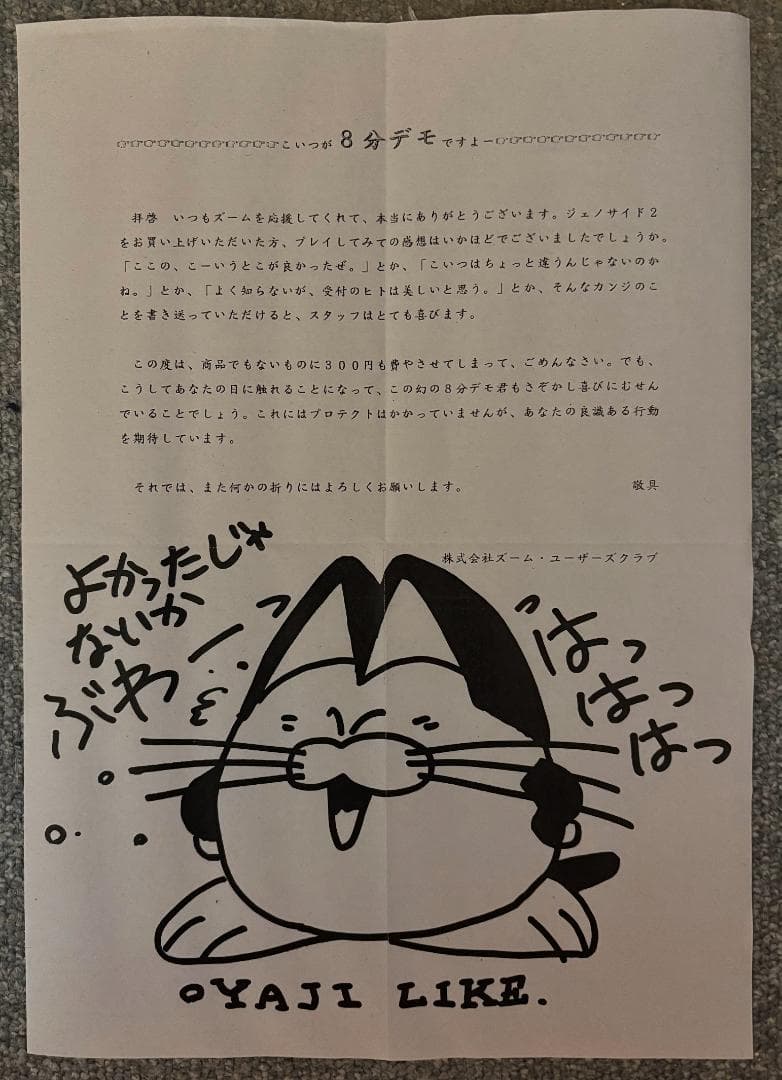 ☞☞☞☞☞☞☞☞☞☞☞☞こいつが８分デモですよー☞☞☞☞☞☞☞☞☞☞☞☞
拝啓　いつもズームを応援してくれて、本当にありがとうございます。ジェノサイド２
をお買い上げいただいた方、プレイしてみての感想はいかほどでございましたでしょうか。
「ここの、こーいうとこが良かったぜ。」とか、「こいつはちょっと違うんじゃないのか
ね。」とか、「よく知らないが、受付のヒトは美しいと思う。」とか、そんなカンジのこ
とを書き送っていただけると、スタッフはとても喜びます。
この度は、商品でもないものに３００円も費やさせてしまって、ごめんなさい。でも、
こうしてあなたの目に触れることになって、この幻の８分デモ君もさぞかし喜びにむせん
でいることでしょう。これにはプロテクトはかかっていませんが、あなたの良識ある行動
を期待しています。
それでは、また何かの折りにはよろしくお願いします。　敬具
株式会社ズーム・ユーザーズクラブ
よかったじゃ
ないか
ぶわーっ
はっ
はっ
はっ
OYAJI LIKE.